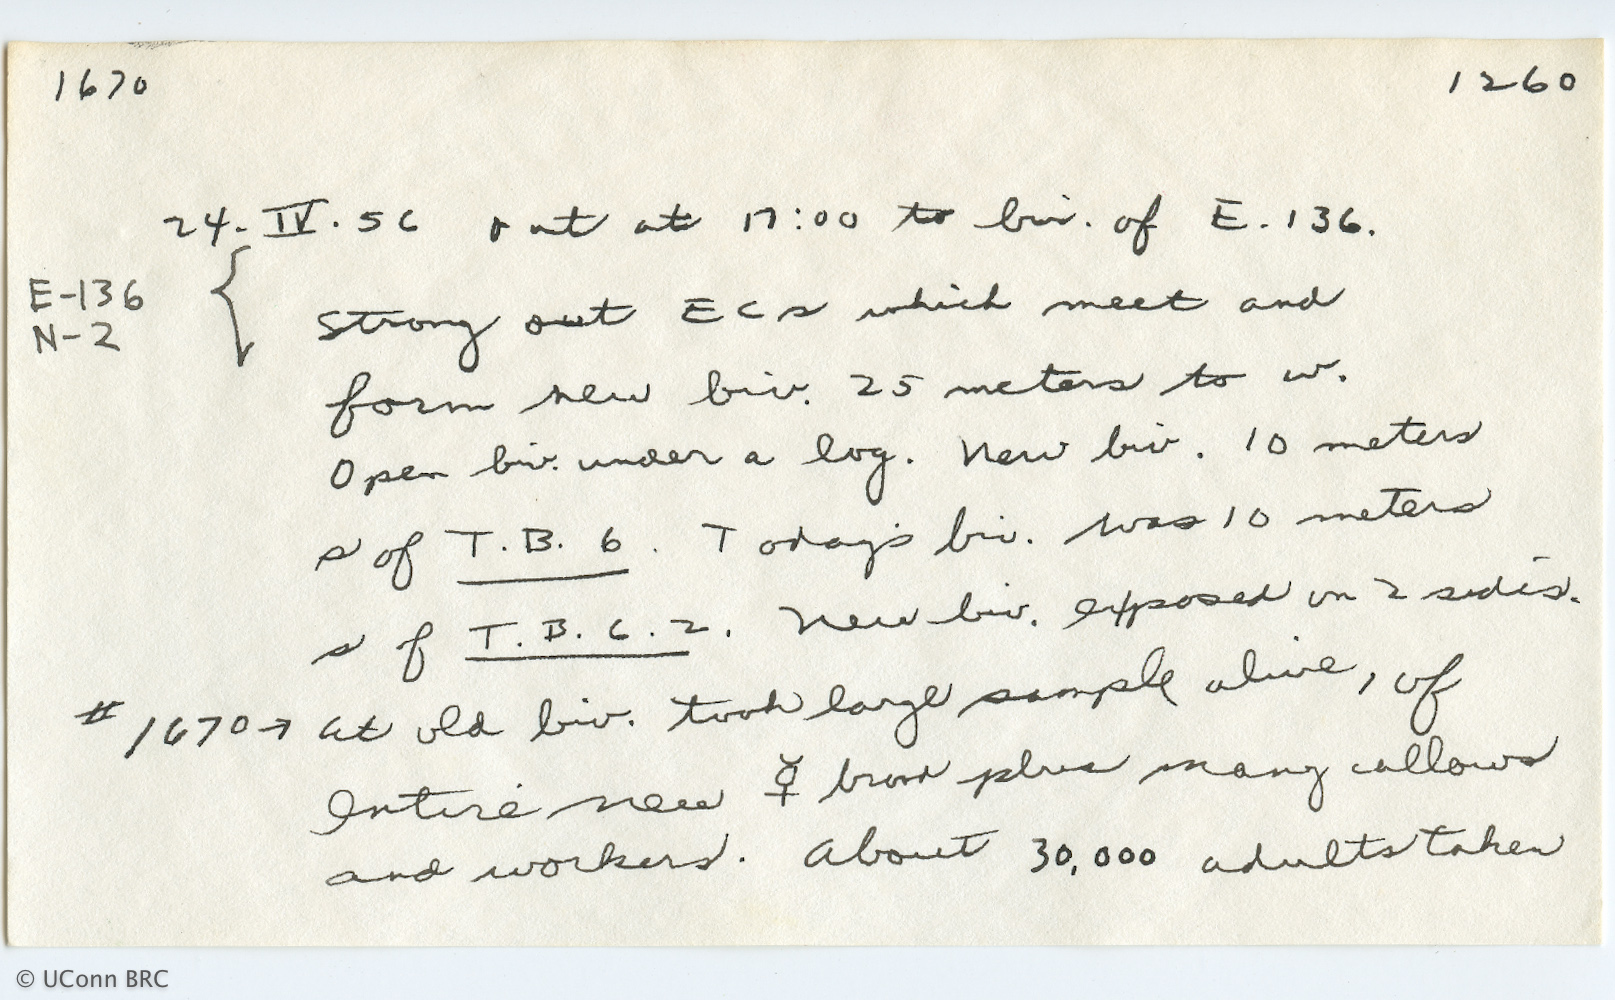 1670 1260
24. IV. 56 out at 17:00 to biv. of E. 136.
E-136
N-2
Strong out ECs which meet and
form new biv. 25 meters to w.
Open biv. under a log. New biv. 10 meters
s of T.B. 6. Today's biv. was 10 meters
s of T.B. 6.2. New biv. exposed on 2 sides.
# 1670 → at old biv. took large sample alive, of
entire new ☿ brood plus many callows
and workers. About 30,000 adults taken
© UConn BRC